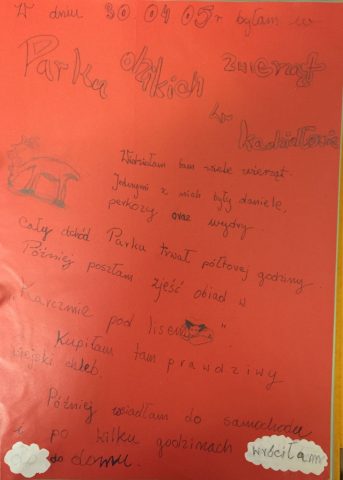 W dniu 30 04 05r byłam w
Parku dzikich zwierząt
w
Kadzidłowie
Widziałam tam wiele zwierząt.
Jednymi z nich były daniele,
perkozy oraz wydry.
cały obchód Parku trwał półtorej godziny.
Później poszłam zjeść obiad w
Karczmie pod lisem".
Kupiłam tam prawdziwy
wiejski chleb.
Później wsiadłam do samochodu
i po kilku godzinach wróciłam
do domu.